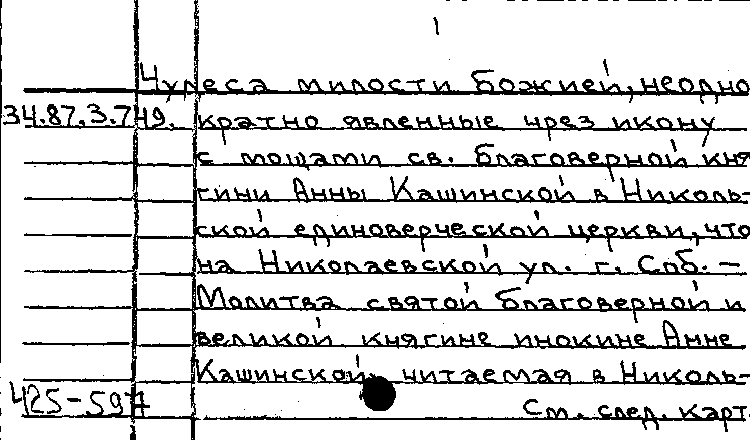 1
Чудеса милости Божией, неодно
34.87.3.749. кратно явленные чрез икону
с мощами св. благоверной кня
гини Анны Кашинской в Николь-
ской единоверческой церкви, что
на Николаевской ул. г. Спб. –
Молитва святой благоверной и
великой княгине инокине Анне
Кашинской, читаемая в Николь-
425-597 См. след. карт.